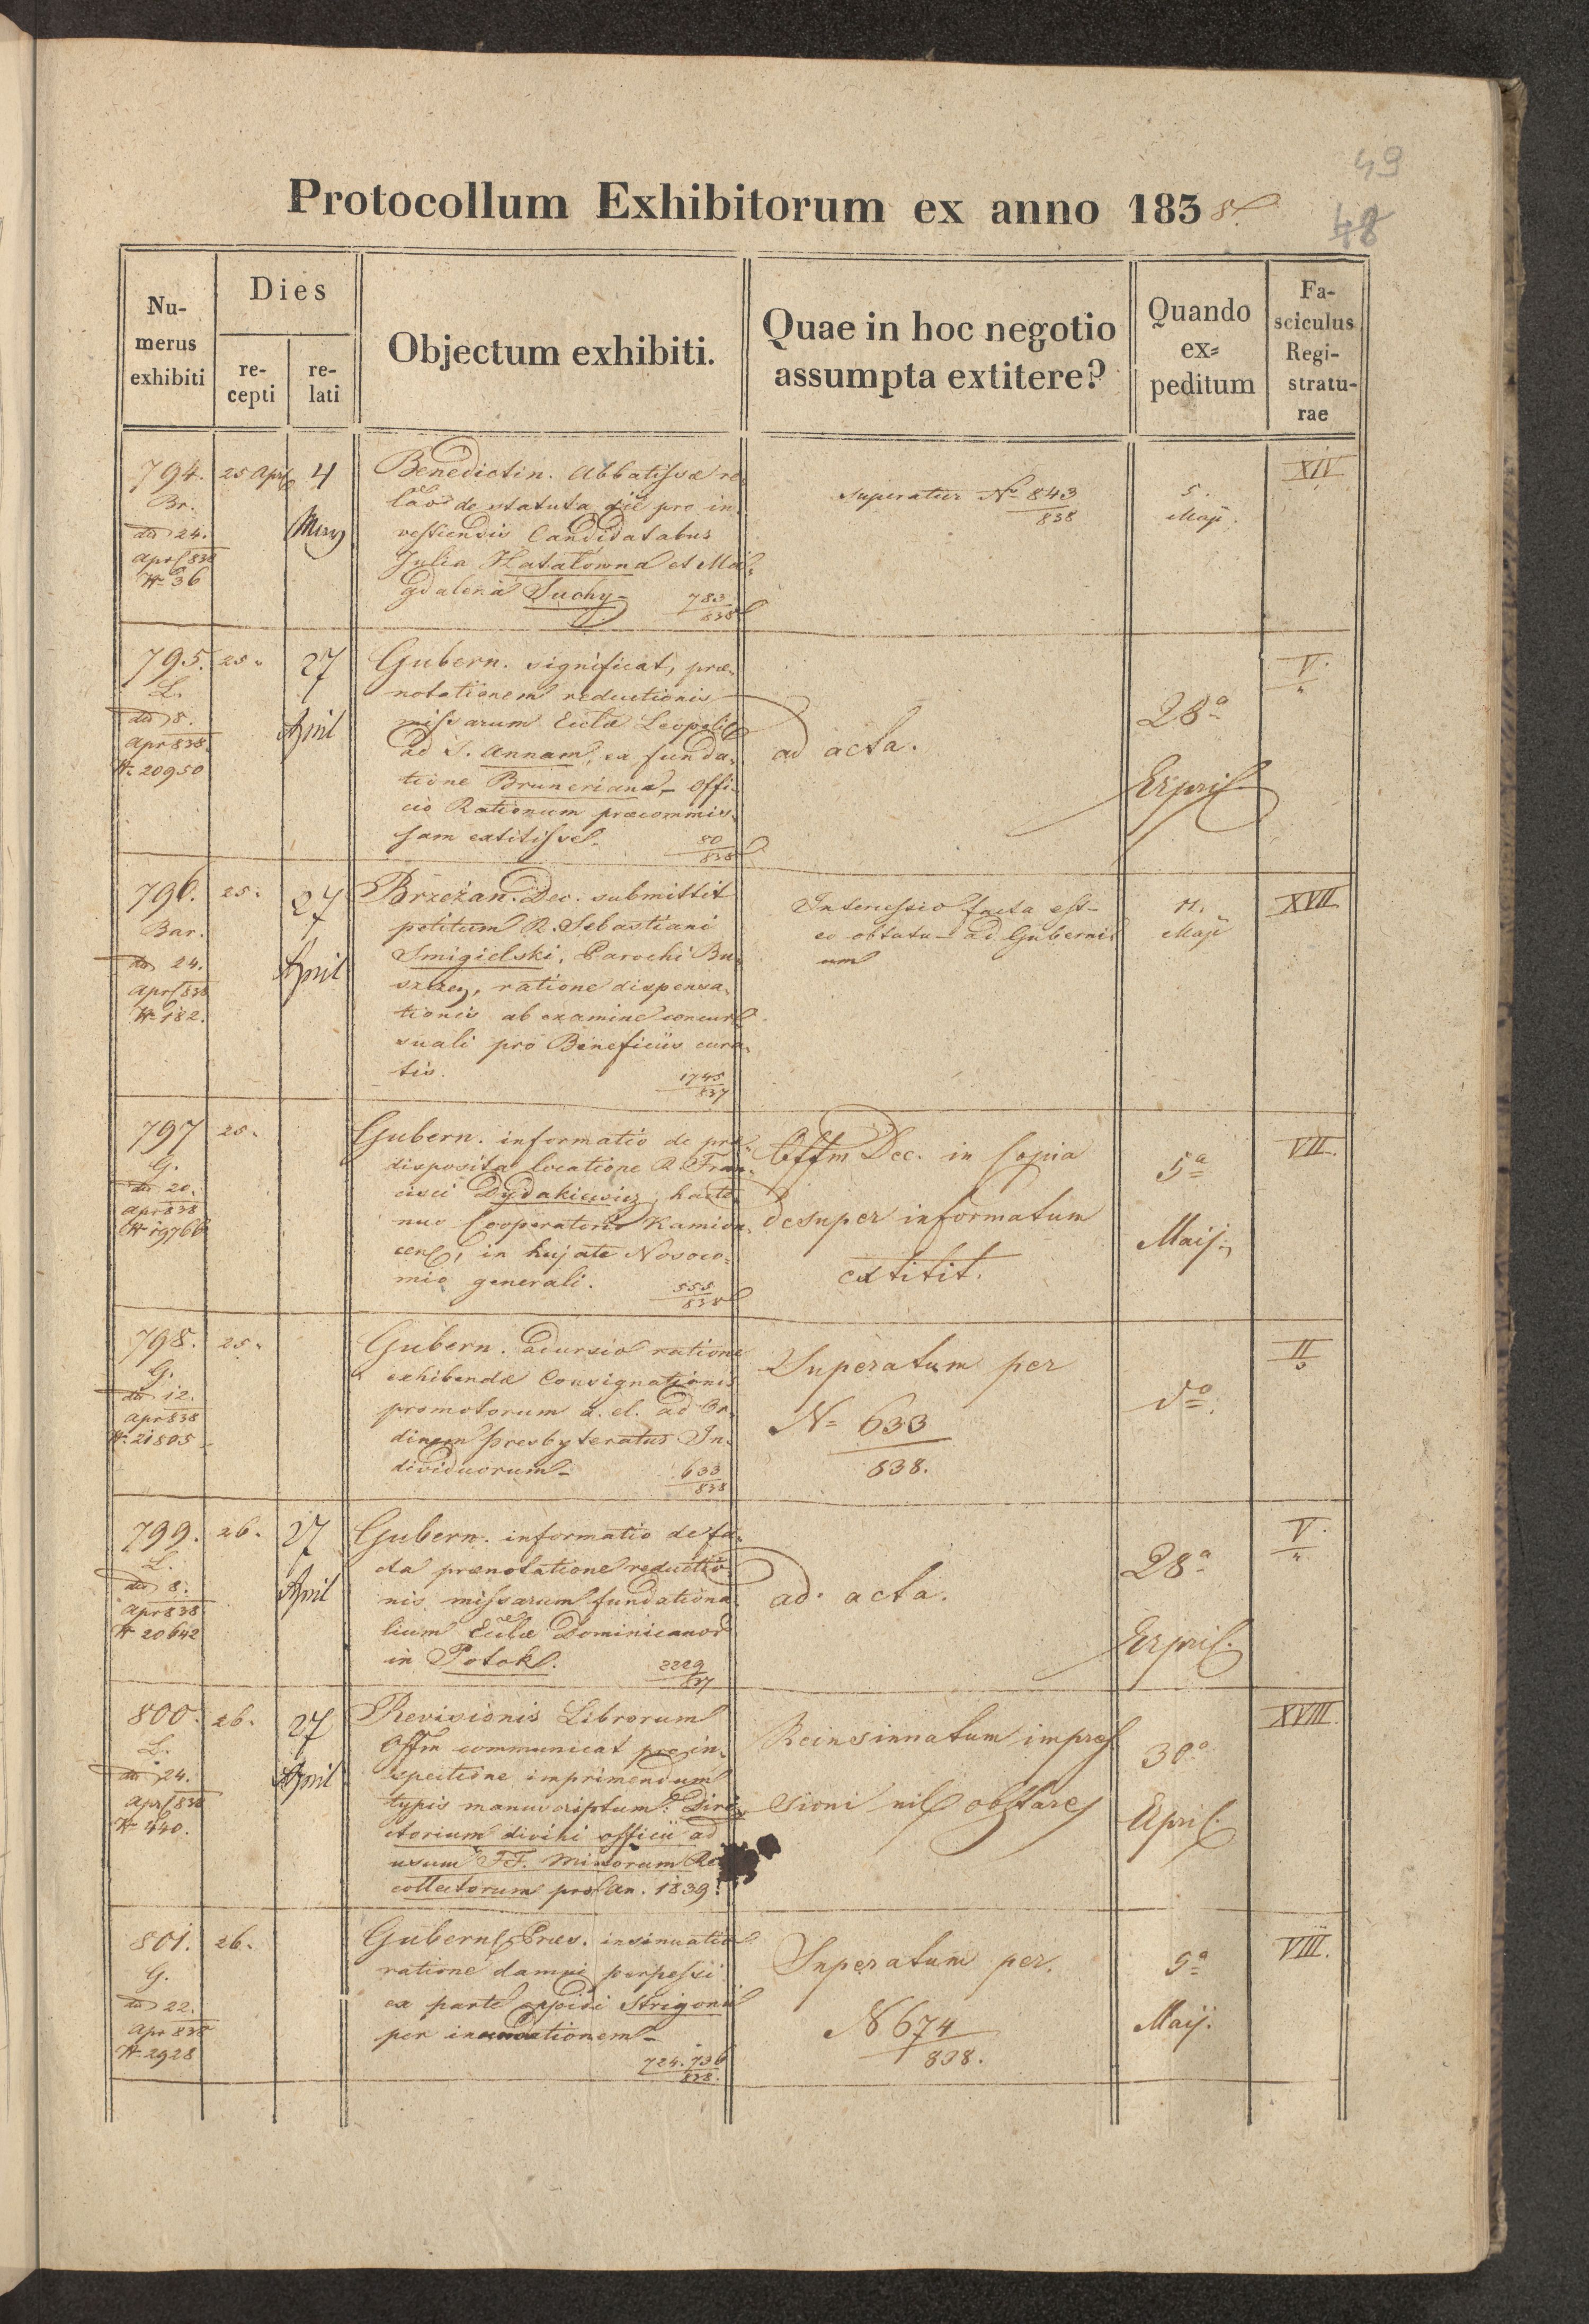 49
48
Protocollum Exhibitorum ex anno 1838
Nu-
merus
exhibiti
Dies
re-
cepti
re-
lati
Objectum exhibiti.
Quae in hoc negotio
assumpta extitere?
Quando
ex=
peditum
Fa-
sciculus
Regi-
stratu-
rae
794.
Br.
dto 24.
Apr 838
N 36
25 Apr
4
May
Benedictin. Abbatissæ re
de statuta die pro in
vestiendis Candidatabus
Julia Hatatówna et Ma
gdalena Suchy
783
838
superatur No 843
838
5.
Maji.
XIV
795.
L.
dto 8.
Apr 838.
N. 20950
25.
27
April
Gubern. significat, præ-
notationem reductionis
missarum Eccłæ Leopolit
ad S. Annam, ex funda-
tione Bruneriana Offi-
cio Rationum præcommis-
sam extitisse.
80
838
ad acta.
28a
April
V.
796.
Bar.
dto 24.
Apr 838
N 182.
25.
27
April
Brzeżan. Dec. submittit
petitum R. Sebastiani
Smigielski, Parochi Bu-
szczey, ratione dispensa-
tionis ab examine concur-
suali pro Beneficiis cura-
tis.
1745
837
Intercessio facta est
eo obtutu ad Guberni
um
11.
Maji
XVII
797
G.
dto 20.
Apr 838
N 19766
25.
Gubern. informatio de præ-
disposita locatione R. Fran-
cisci Dydakiewicz, hacte-
nus Cooperatoris Kamion-
cen, in hujate Nosoco-
mio generali.
555
838
Offm Dec. in Copia
desuper informatum
extitit.
5a
Maij.
VII.
798.
G.
dto 12.
Apr 838
N. 21805
25.
Gubern. adursio ratione
exhibendæ Consignationis
promotorum a. el. ad Or-
dinem presbyteratus In-
dividuorum
633
838
Superatum per
N 633
838.
do.
II
799.
L.
dto 8.
Apr 838
N 20642
26.
27
April
Gubern. informatio de fa-
cta prænotatione reductio-
nis missarum fundationa-
lium Eccłæ Dominicanor
in Potok.
2229
837
ad acta.
28a
April.
V.
800.
L.
dto 24.
Apr 838
N 440.
26.
27
April
Revisionis Librorum
Offm communicat pro in-
spectione imprimendum
typis manuscriptum: Dire
ctorium divini officii ad
usum FF. Minorum Re
collectorum pro An. 1839.
Reinsinuatum impres
sioni nil obstare
30a
April.
XVIII.
801.
G.
dto 22.
Apr 838
N 2928
26.
Gubern. Præs. insinuatio
ratione damni perpessi
ex parte oppidi Strigonii
per inundationem
724. 736
838.
Superatum per.
N 674
838.
5a
Maij.
VIII.